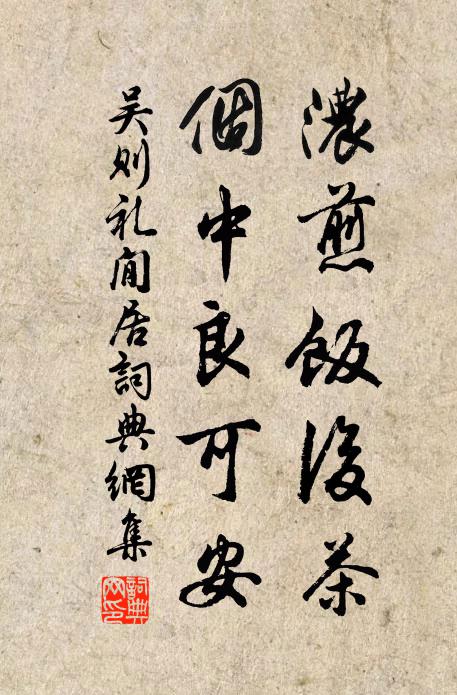 濃煎飯後茶
個中良可安
吳則礼閒居詞典網集
詞典網印